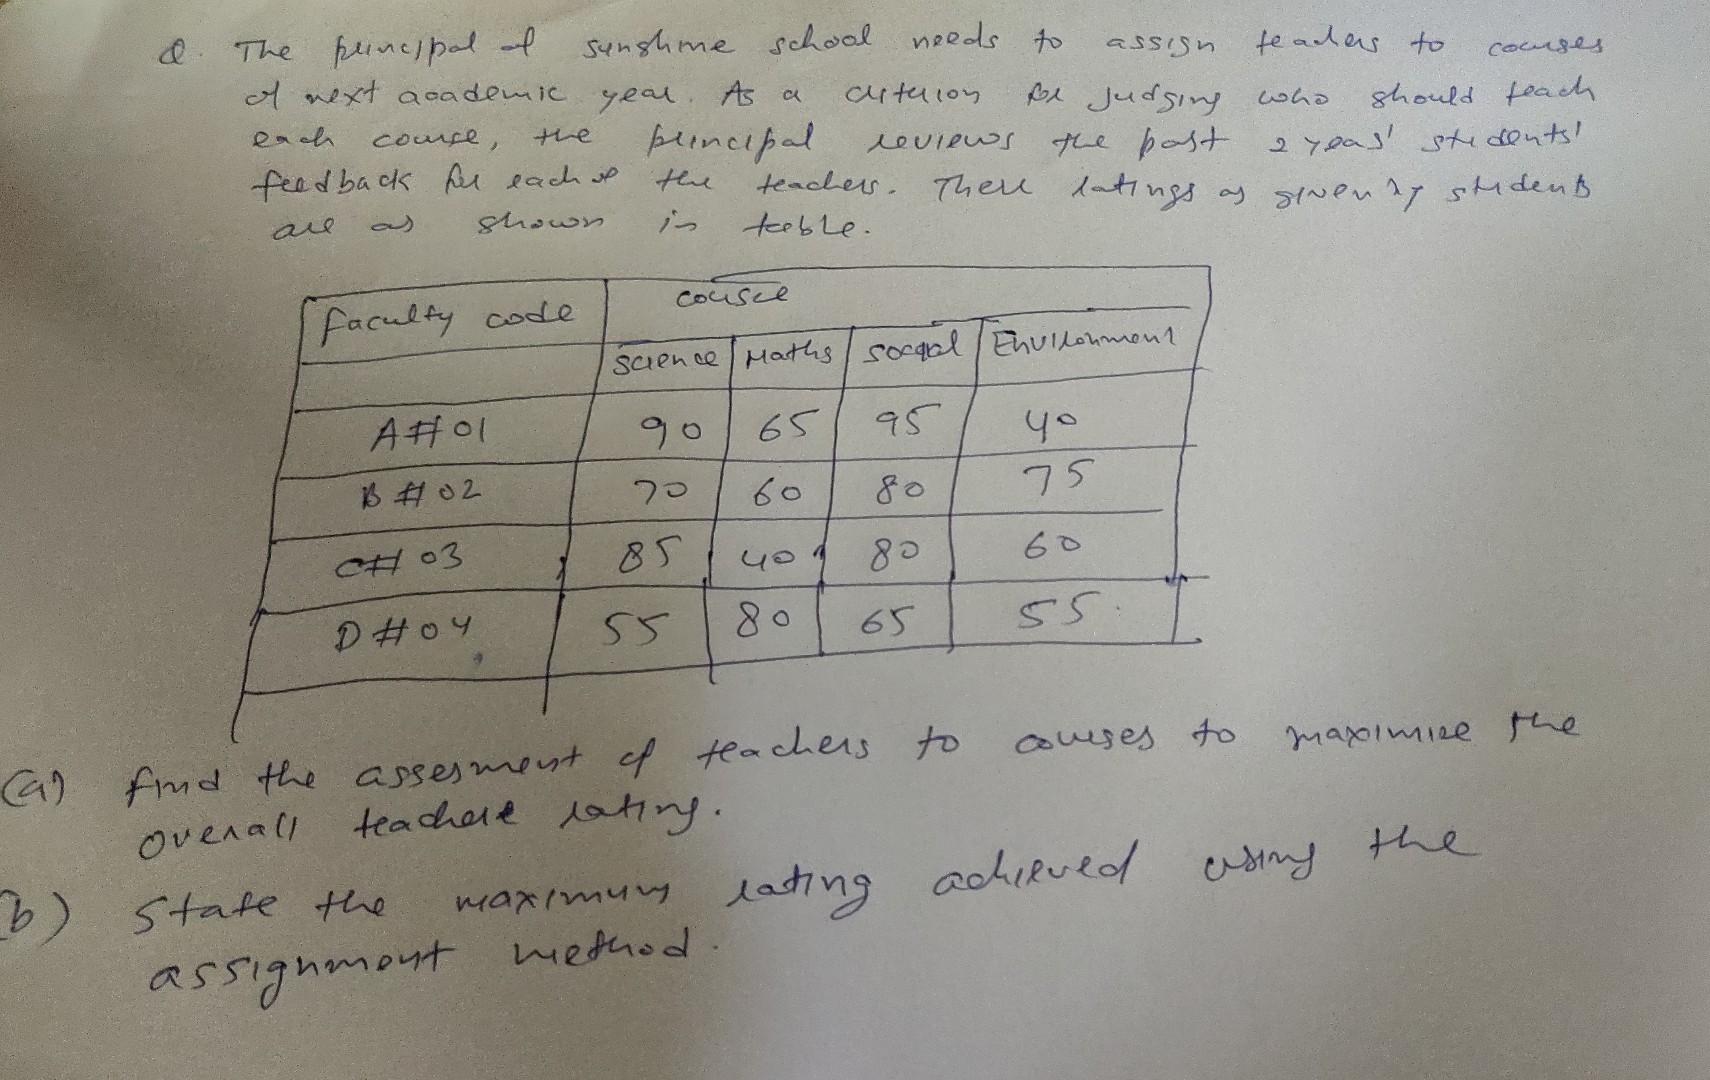 Q. The principal of sunshine school needs to assign teachers to courses
of next academic year. As a criterion for judging who should teach
each course, the principal reviews the past 2 years' students'
feedback for each of the teachers. These ratings as given by students
are as shown in table.
Faculty code course
science Maths social Environment
A#01 90 65 95 40
B#02 70 60 80 75
C#03 85 40 80 60
D#04 55 80 65 55
(a) find the assesment of teachers to courses to maximize the
overall teachers rating.
b) State the maximum rating achieved using the
assignment method.